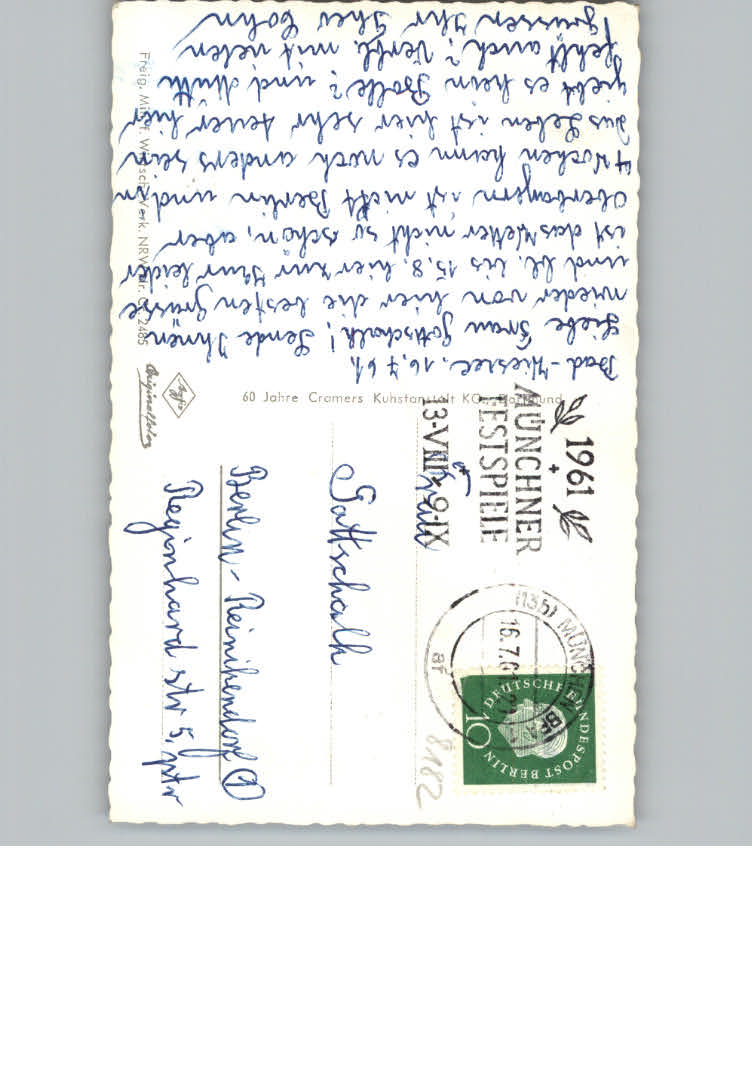 Bad-Wiessee. 16.7.61.
Liebe Frau Gottschalk! Sende Ihnen
wieder von hier die besten Grüsse
und bl. bis 15.8. hier zur Kur leider
ist das Wetter nicht so schön, aber
Oberbayern ist nicht Berlin und in
4 Wochen kann es noch anders sein
das Leben ist hier sehr teuer hier
giebt es kein Bolle? und Mutti
fehlt auch? Verbl. mit vielen
Grüssen Ihr Theo Cohn
60 Jahre Cramers Kunstanstalt KG., Dortmund
Agfa
Originalfoto
Freig. Min. f. Wirtsch. Verk. NRW Nr.
2485
1961
MÜNCHNER
FESTSPIELE
13-VIII - 9-IX
(13b) MÜNCHEN
16.7.61
af
DEUTSCHE BUNDESPOST BERLIN
10
8182
Frau
Gottschalk
Berlin-Reinikendorf (1)
Reginhard str 5, ptr